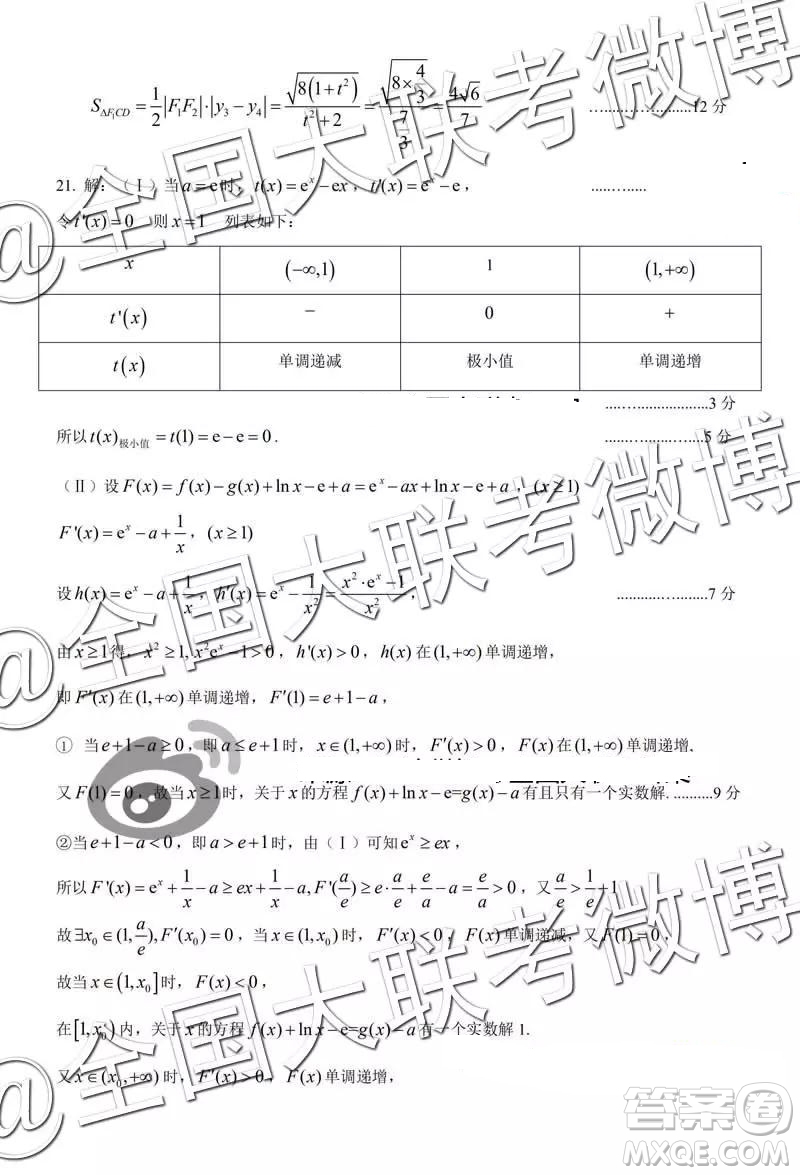 S_{ΔF₁CD} = 1/2 |F₁F₂|·|y₃−y₄| = √(8(1+t²))/(t²+2) = √(8×4/3)/(7/3) = 4√6/7 ……………12分
21. 解：（Ⅰ）当a=e时，t(x)=eˣ−ex，t'(x)=eˣ−e， ……….
令t'(x)=0 则x=1 列表如下：
x (−∞,1) 1 (1,+∞)
t'(x) − 0 +
t(x) 单调递减 极小值 单调递增
………………….3分
所以t(x)极小值=t(1)=e−e=0. ……………..5分
（Ⅱ）设F(x)=f(x)−g(x)+ln x−e+a=eˣ−ax+ln x−e+a，(x≥1)
F'(x)=eˣ−a+1/x，(x≥1)
设h(x)=eˣ−a+1/x，h'(x)=eˣ−1/x²=(x²·eˣ−1)/x²， ………………..7分
由x≥1得，x²≥1，x²eˣ−1>0，h'(x)>0，h(x)在(1,+∞)单调递增，
即F'(x)在(1,+∞)单调递增，F'(1)=e+1−a，
① 当e+1−a≥0，即a≤e+1时，x∈(1,+∞)时，F'(x)>0，F(x)在(1,+∞)单调递增.
又F(1)=0，故当x≥1时，关于x的方程f(x)+ln x−e=g(x)−a有且只有一个实数解. ..........9分
②当e+1−a<0，即a>e+1时，由（Ⅰ）可知eˣ≥ex，
所以F'(x)=eˣ+1/x−a≥ex+1/x−a, F'(a/e)≥e·a/e+e/a−a=e/a>0，又a/e>1/e+1
故∃x₀∈(1,a/e), F'(x₀)=0，当x∈(1,x₀)时，F'(x)<0，F(x)单调递减，又F(1)=0，
故当x∈(1,x₀]时，F(x)<0，
在[1,x₀)内，关于x的方程f(x)+ln x−e=g(x)−a有一个实数解1.
又x∈(x₀,+∞)时，F'(x)>0，F(x)单调递增，
@全国大联考微博
@全国大联考微博
@全国大联考微博
答案卷
MXQE.COM